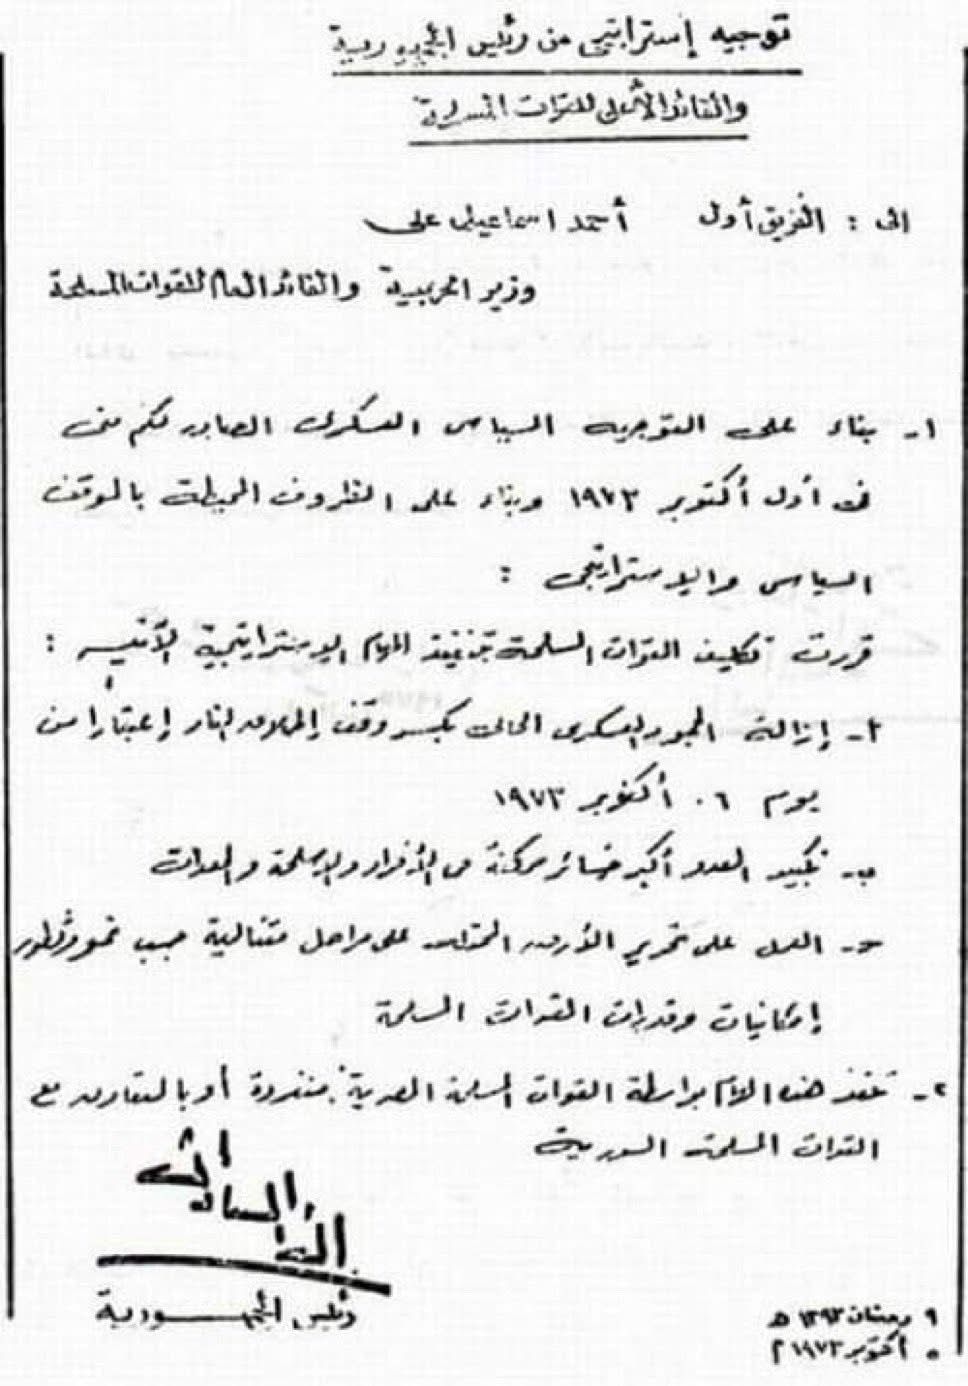 توجيه إستراتيجى من رئيس الجمهورية
والقائد الأعلى للقوات المسلحة
الى : الفريق أول أحمد اسماعيل على
وزير الحربية والقائد العام للقوات المسلحة
١- بناء على التوجيه السياسى العسكرى الصادر لكم منى
فى أول أكتوبر ١٩٧٣ وبناء على الظروف المحيطة بالموقف
السياسى والاستراتيجى :
قررت تكليف القوات المسلحة بتنفيذ المهام الاستراتيجية الآتية :
أ- إزالة الجمود العسكرى الحالى بكسر وقف إطلاق النار إعتبارا من
يوم ٦ أكتوبر ١٩٧٣
ب- تكبيد العدو أكبر خسائر ممكنة من الأفراد والاسلحة والمعدات
ج- العمل على تحرير الأرض المحتلة على مراحل متتالية حسب نمو وتطور
إمكانيات وقدرات القوات المسلحة
٢- تنفذ هذه المهام بواسطة القوات المسلحة المصرية منفردة أو بالتعاون مع
القوات المسلحة السورية
أنور السادات
رئيس الجمهورية
٩ رمضان ١٣٩٣ هـ
٥ أكتوبر ١٩٧٣ م